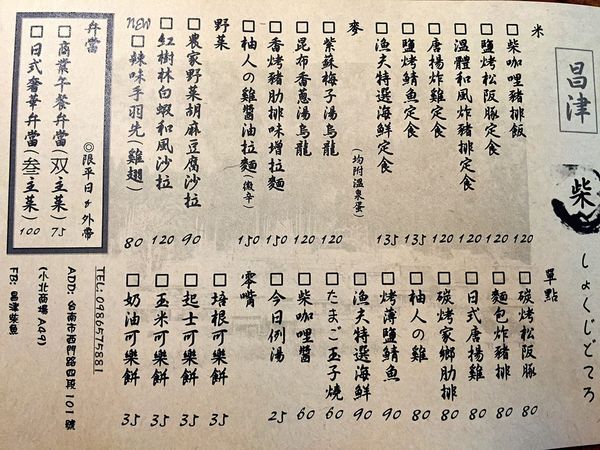 昌津
柴
しょくじどころ
米
□柴咖哩豬排飯 120
□鹽烤松阪豚定食 120
□溫體和風炸豬排定食 120
□唐揚炸雞定食 120
□鹽烤鯖魚定食 135
□漁夫特選海鮮定食 135
麥 (均附溫泉蛋)
□紫蘇梅子湯烏龍 120
□昆布香蔥湯烏龍 120
□香烤豬肋排味增拉麵 150
□柚人の雞醬油拉麵(微辛) 150
野菜
□農家野菜胡麻豆腐沙拉 90
□紅樹林白蝦和風沙拉 120
NEW □辣味手羽先(雞翅) 80
弁當 ◎限平日&外帶
□商業午餐弁當(双主菜) 75
□日式奢華弁當(叁主菜) 100
單點
□碳烤松阪豚 80
□麵包炸豬排 80
□日式唐揚雞 80
□碳烤家鄉肋排 80
□柚人の雞 80
□烤薄鹽鯖魚 90
□漁夫特選海鮮 90
□たまご玉子燒 60
□柴咖哩醬 60
□今日例湯 25
零嘴
□培根可樂餅 35
□起士可樂餅 35
□玉米可樂餅 35
□奶油可樂餅 35
TEL: 0986575881
ADD: 台南市西門路四段101號
(小北商場 A49)
FB: 昌津柴魚